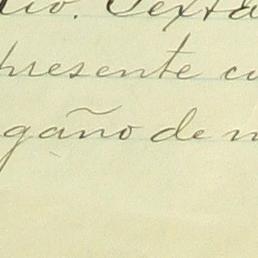 io. Sexta
presente c
gaño de